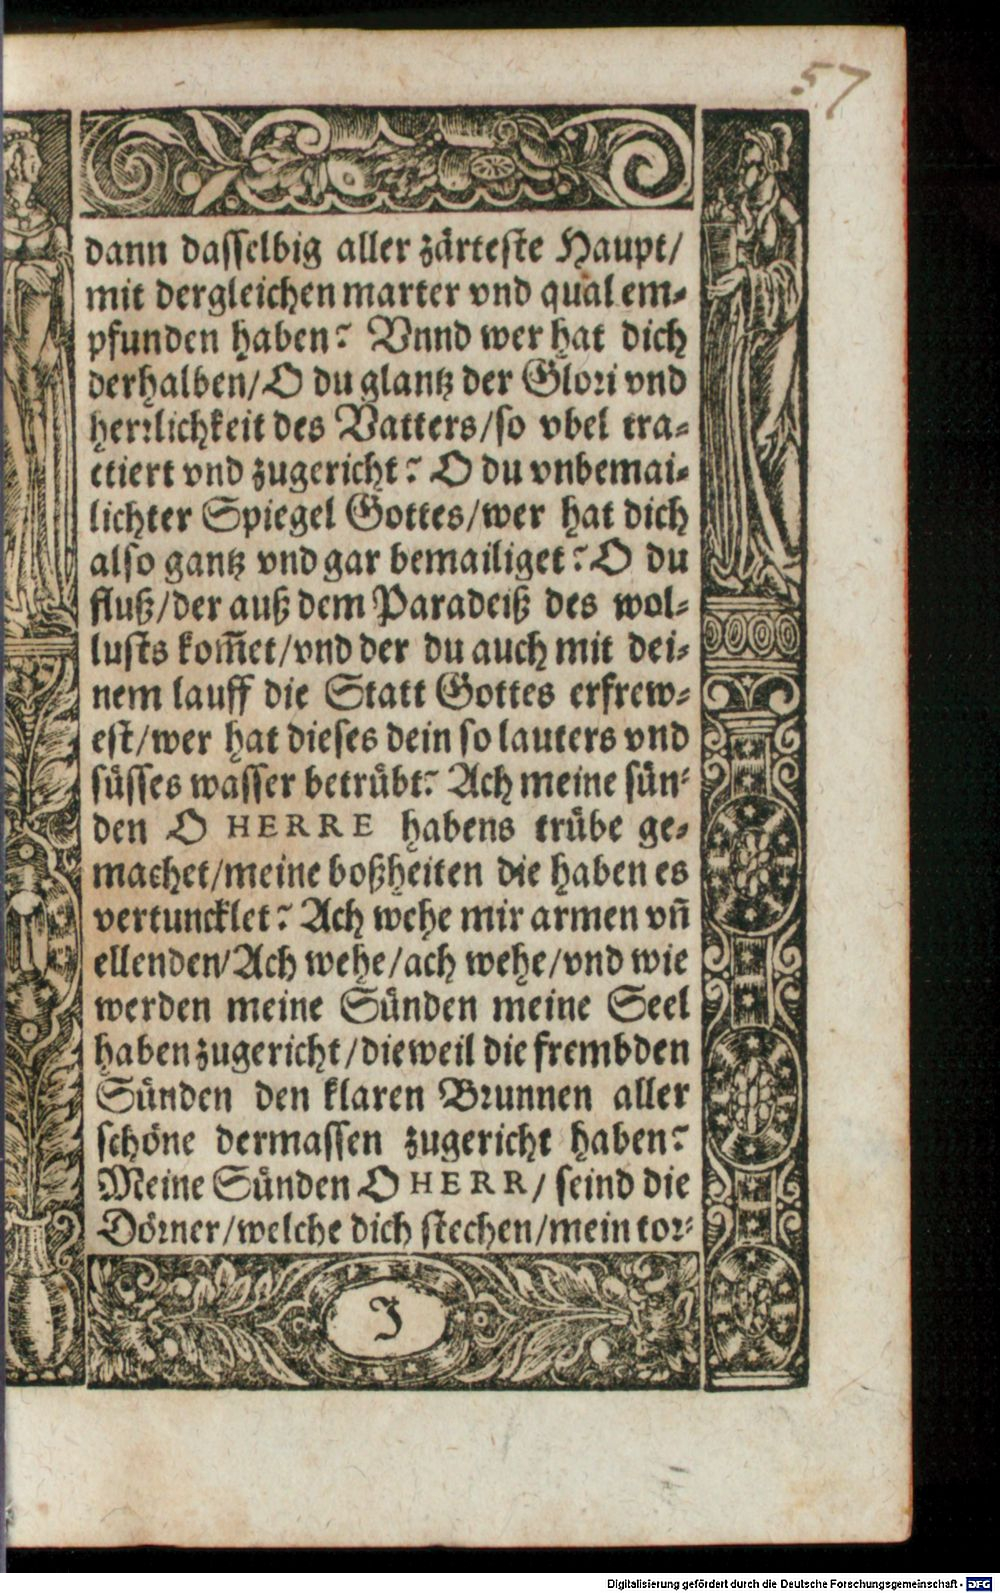 57
dann dasselbig aller zärteste Haupt/
mit dergleichen marter vnd qual em-
pfunden haben? Vnnd wer hat dich
derhalben/O du glantz der Glori vnd
herrlichkeit des Vatters/so vbel tra-
ctiert vnd zugericht? O du vnbemai-
lichter Spiegel Gottes/wer hat dich
also gantz vnd gar bemailiget? O du
fluß/der auß dem Paradeiß des wol-
lusts kom̄et/vnd der du auch mit dei-
nem lauff die Statt Gottes erfrew-
est/wer hat dieses dein so lauters vnd
süsses wasser betrübt? Ach meine sün-
den O HERRE habens trübe ge-
machet/meine boßheiten die haben es
vertuncklet? Ach wehe mir armen vn̄
ellenden/Ach wehe/ach wehe/vnd wie
werden meine Sünden meine Seel
haben zugericht/dieweil die frembden
Sünden den klaren Brunnen aller
schöne dermassen zugericht haben?
Meine Sünden O HERR/ seind die
Dörner/welche dich stechen/mein tor-
J
Digitalisierung gefördert durch die Deutsche Forschungsgemeinschaft - DFG